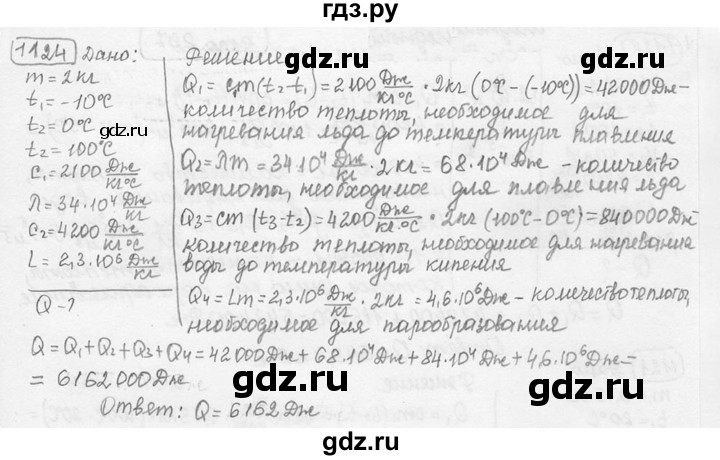 гдз.ру
1124 Дано:
m = 2 кг
t₁ = -10°C
t₂ = 0°C
t₂ = 100°C
c₁ = 2100 Дж/кг°C
λ = 34·10⁴ Дж/кг
c₂ = 4200 Дж/кг°C
L = 2,3·10⁶ Дж/кг
Q - ?
Решение
Q₁ = cm(t₂-t₁) = 2100 Дж/кг·°C · 2кг (0°C - (-10°C)) = 42000 Дж -
количество теплоты, необходимое для
нагревания льда до температуры плавления
Q₂ = λm = 34·10⁴ Дж/кг · 2 кг = 68·10⁴ Дж - количество
теплоты, необходимое для плавления льда
Q₃ = cm (t₃-t₂) = 4200 Дж/кг·°C · 2кг (100°C - 0°C) = 840000 Дж -
количество теплоты, необходимое для нагревания
воды до температуры кипения
Q₄ = Lm = 2,3·10⁶ Дж/кг · 2 кг = 4,6·10⁶ Дж - количество теплоты,
необходимое для парообразования
Q = Q₁ + Q₂ + Q₃ + Q₄ = 42000 Дж + 68·10⁴ Дж + 84·10⁴ Дж + 4,6·10⁶ Дж =
= 6162000 Дж
Ответ: Q = 6162 Дж
gdz.ru
gdz.ru
gdz.ru
gdz.ru
gdz.ru
gdz.ru
gdz.ru
gdz.ru
gdz.ru